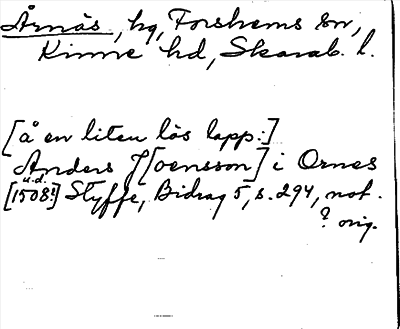 Årnäs, hg, Forshems sn,
Kinne hd, Skarab. l.
[å en liten lös lapp:]
Anders J[oensson] i Ornes
u.d.
[1508?] Styffe, Bidrag 5, s. 294, not.
? orig.